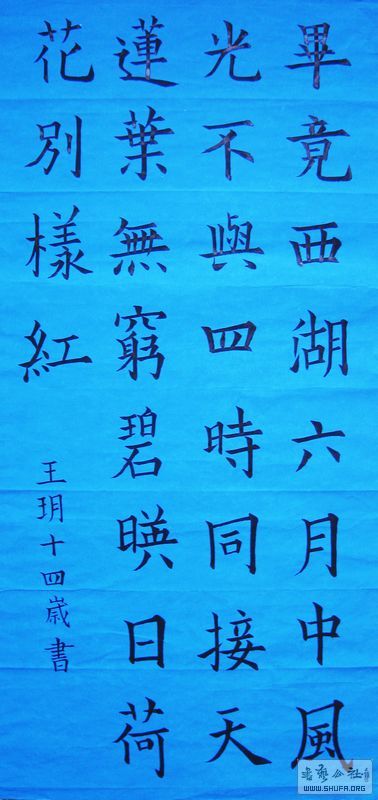 畢竟西湖六月中風
光不與四時同接天
蓮葉無窮碧暎日荷
花別樣紅
王玥十四歲書
书艺公社
WWW.SHUFA.ORG